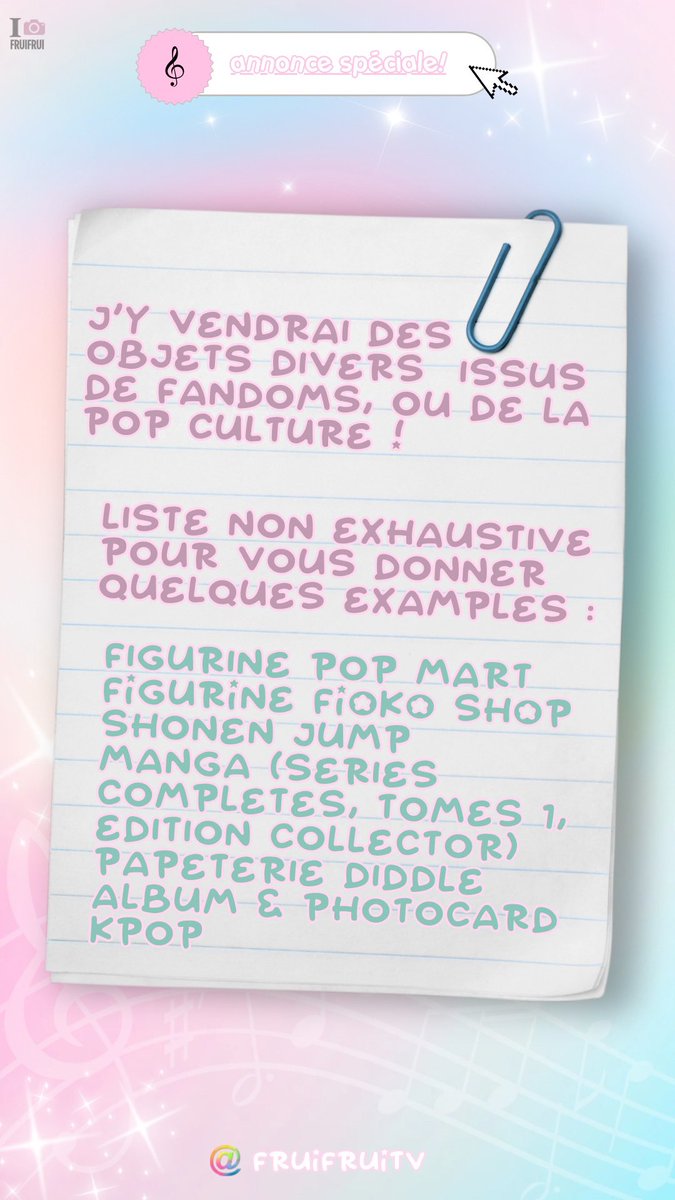 I
FRUIFRUI
annonce spéciale!
J'Y VENDRAI DES
OBJETS DIVERS ISSUS
DE FANDOMS, OU DE LA
POP CULTURE !
LISTE NON EXHAUSTIVE
POUR VOUS DONNER
QUELQUES EXAMPLES :
FIGURINE POP MART
FIGURINE FIOKO SHOP
SHONEN JUMP
MANGA (SERIES
COMPLETES, TOMES 1,
EDITION COLLECTOR)
PAPETERIE DIDDLE
ALBUM & PHOTOCARD
KPOP
@ FRUIFRUITV